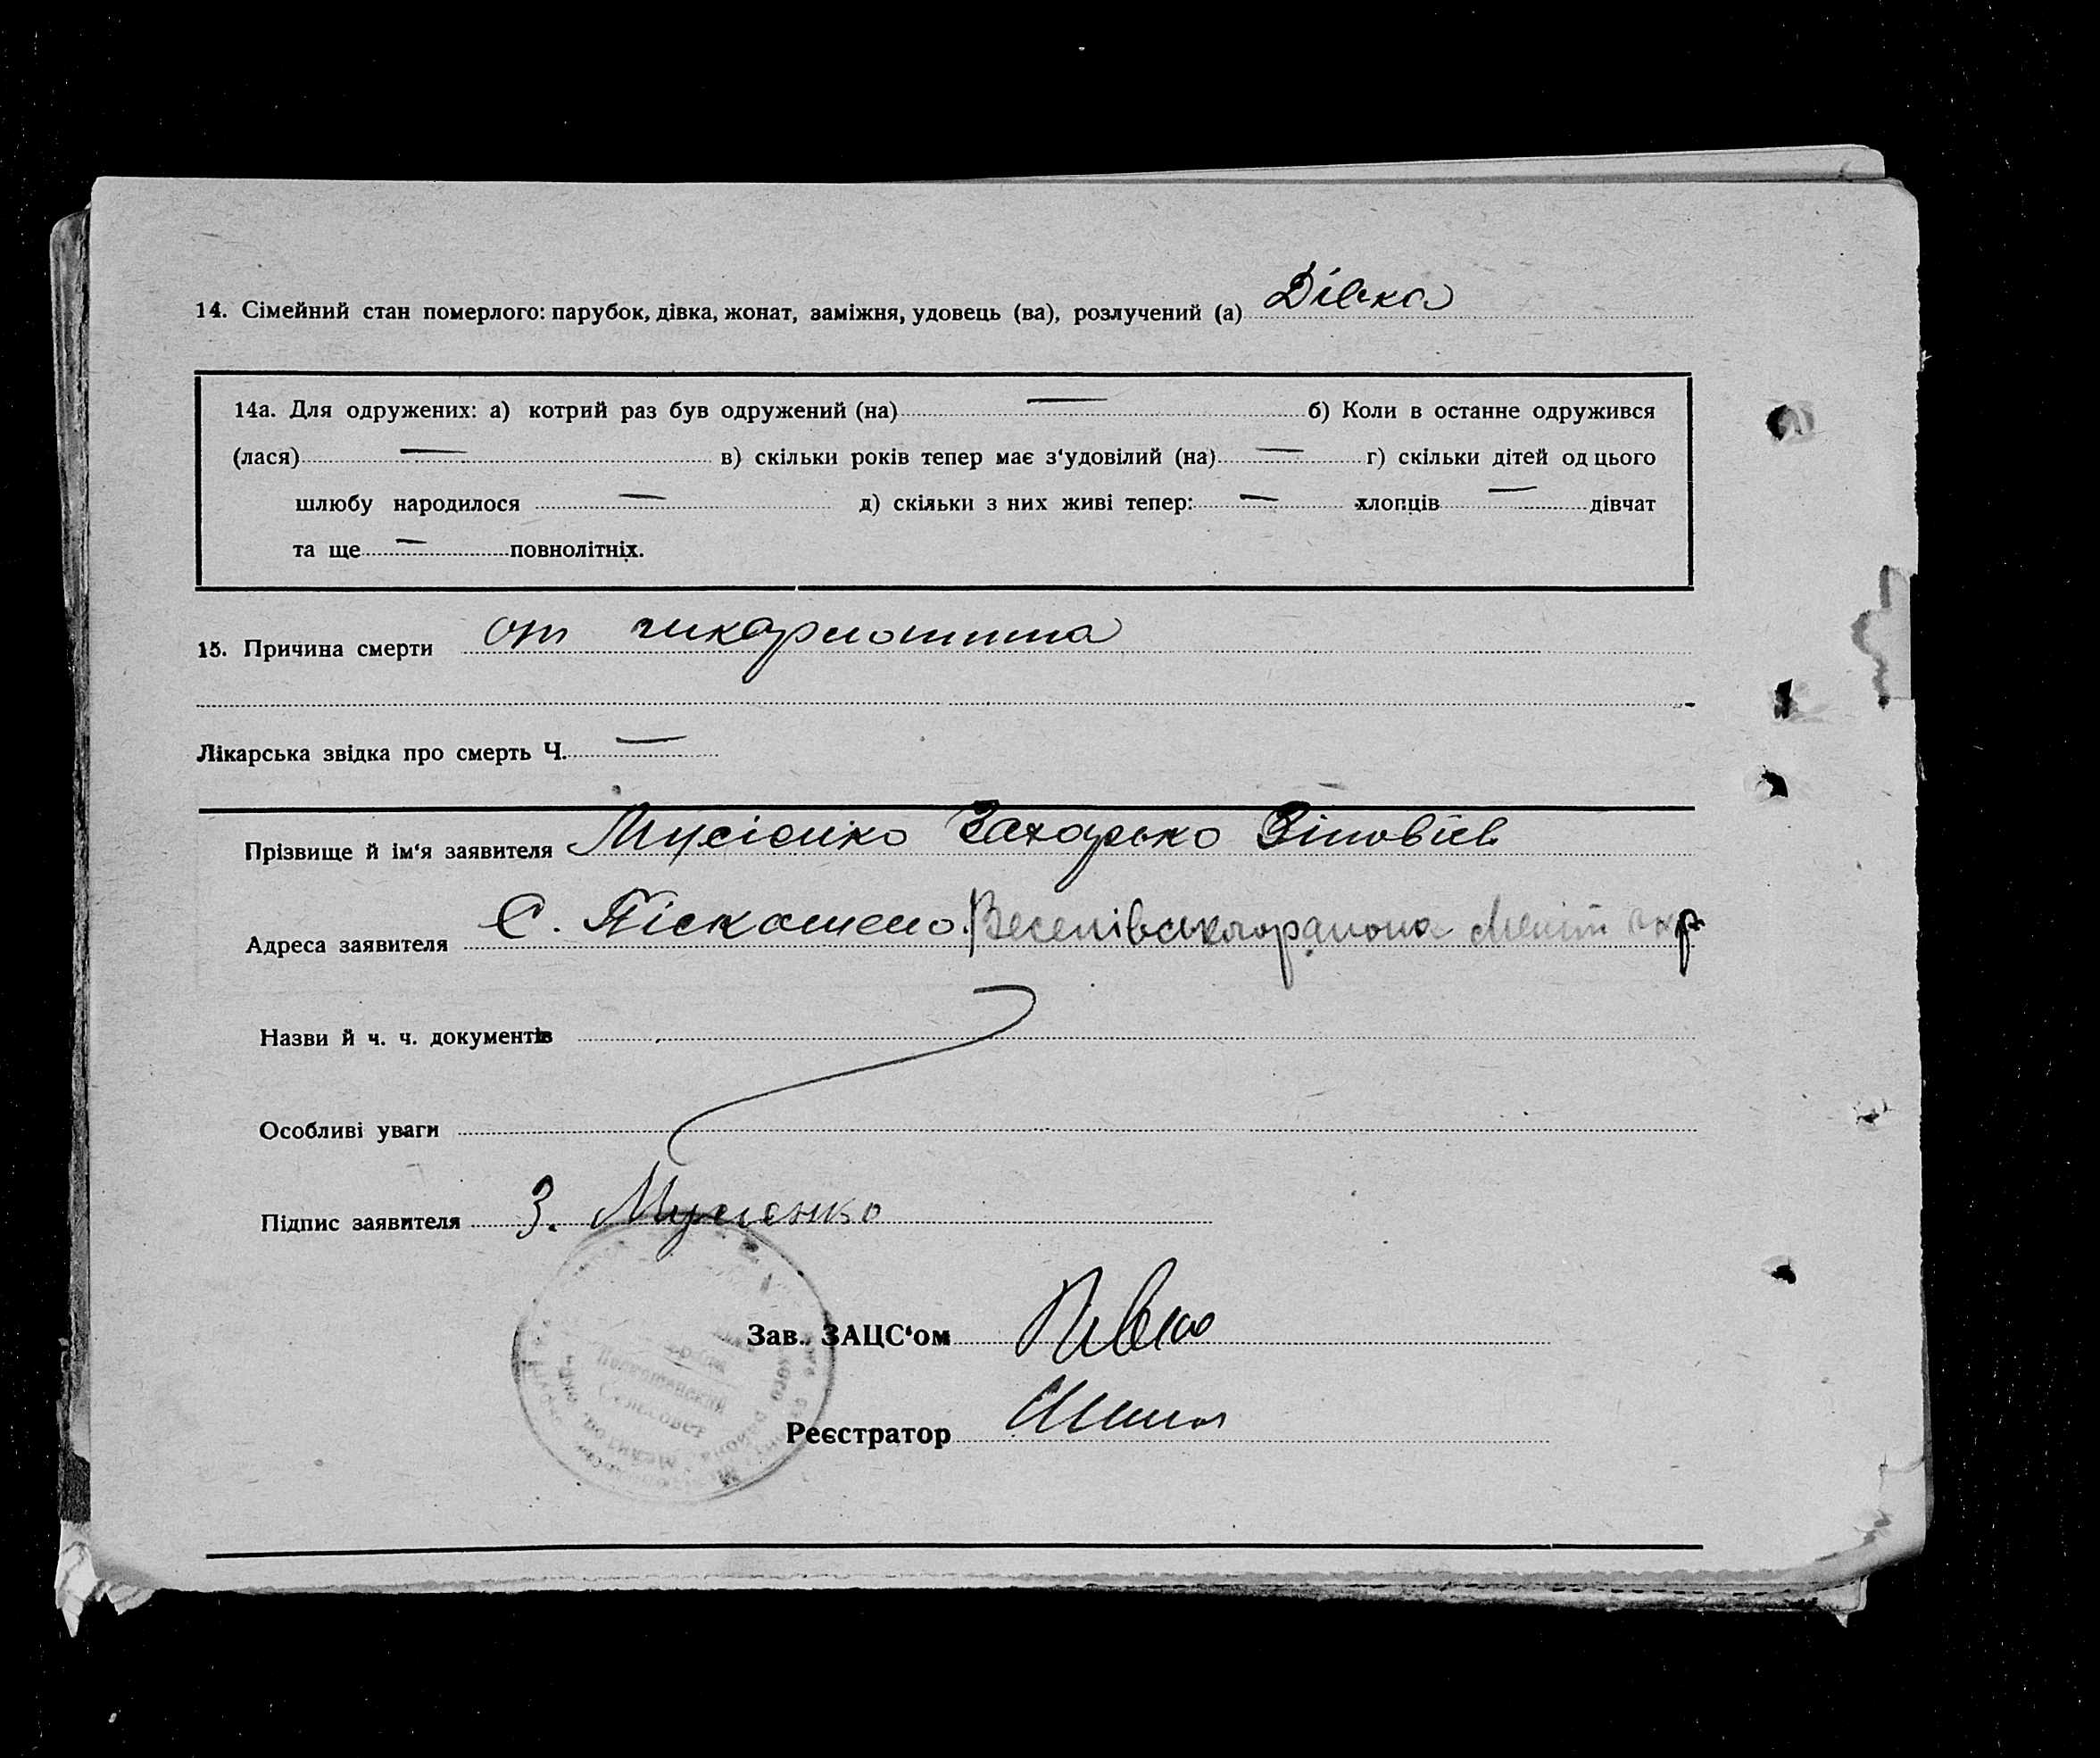 14. Сімейний стан померлого: парубок, дівка, жонат, заміжня, удовець (ва), розлучений (а) Дівка
14а. Для одружених: а) котрий раз був одружений (на) — б) Коли в останне одружився
(лася) — в) скільки років тепер має з‘удовілий (на) — г) скільки дітей од цього
шлюбу народилося — д) скільки з них живі тепер: — хлопців — дівчат
та ще — повнолітніх.
15. Причина смерти от
Лікарська звідка про смерть Ч. —
Прізвище й ім‘я заявителя Мусієнко Захарько
Адреса заявителя С.
Назви й ч. ч. документів
Особливі уваги
Підпис заявителя З. Мусієнко
Зав. ЗАЦС‘ом
Реєстратор